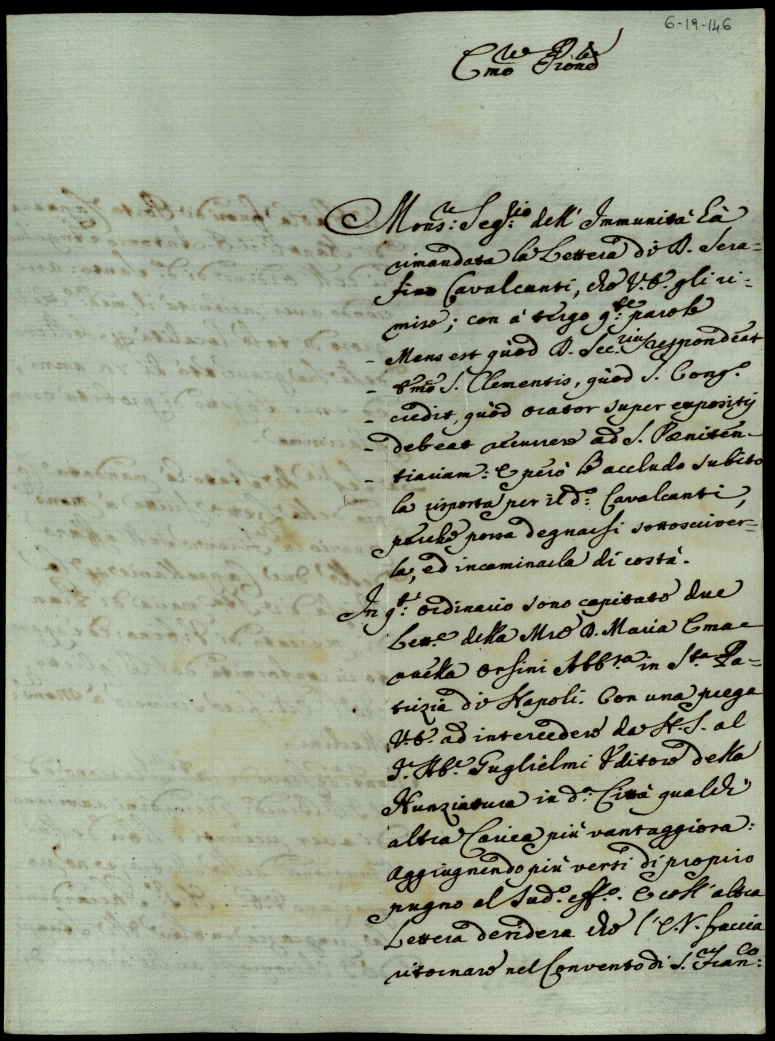 6-19-146
Emo͞ e Rmo͞ Prone͞
Mons:re Seg:rio dell' Immunità hà
rimandata la Lettera di D. Sera-
fino Cavalcanti, che V.E. gli ri-
mise; con à tergo q:te parole
- Mens est quòd D. Sec:rius respondeat
- Emo͞ S. Clementis, quòd S. Cong.e
- credit, quòd orator super expositis
- debeat recurrere ad S. Pœniten-
- tiariam: E però le accludo subito
la risposta per il d.o Cavalcanti,
perche possa degnarsi sottoscriver-
la, ed incaminarla di costà.
In q:to ordinario sono capitate due
Lett:e della Mre D. Maria Ema-
nuella Orsini Abb:ssa in S:ta Pa-
trizia di Napoli. Con una prega
V.E. ad intercedere da N.S. al
Guglielmi Uditore della
Nunziatura in d.a Città qualche
altra Carica più vantaggiosa:
aggiugnendo più versi di proprio
pugno al Sud.o eff.o. E coll' altra
Lettera desidera che l'E.V. faccia
ritornare nel Convento di S. Fran:co